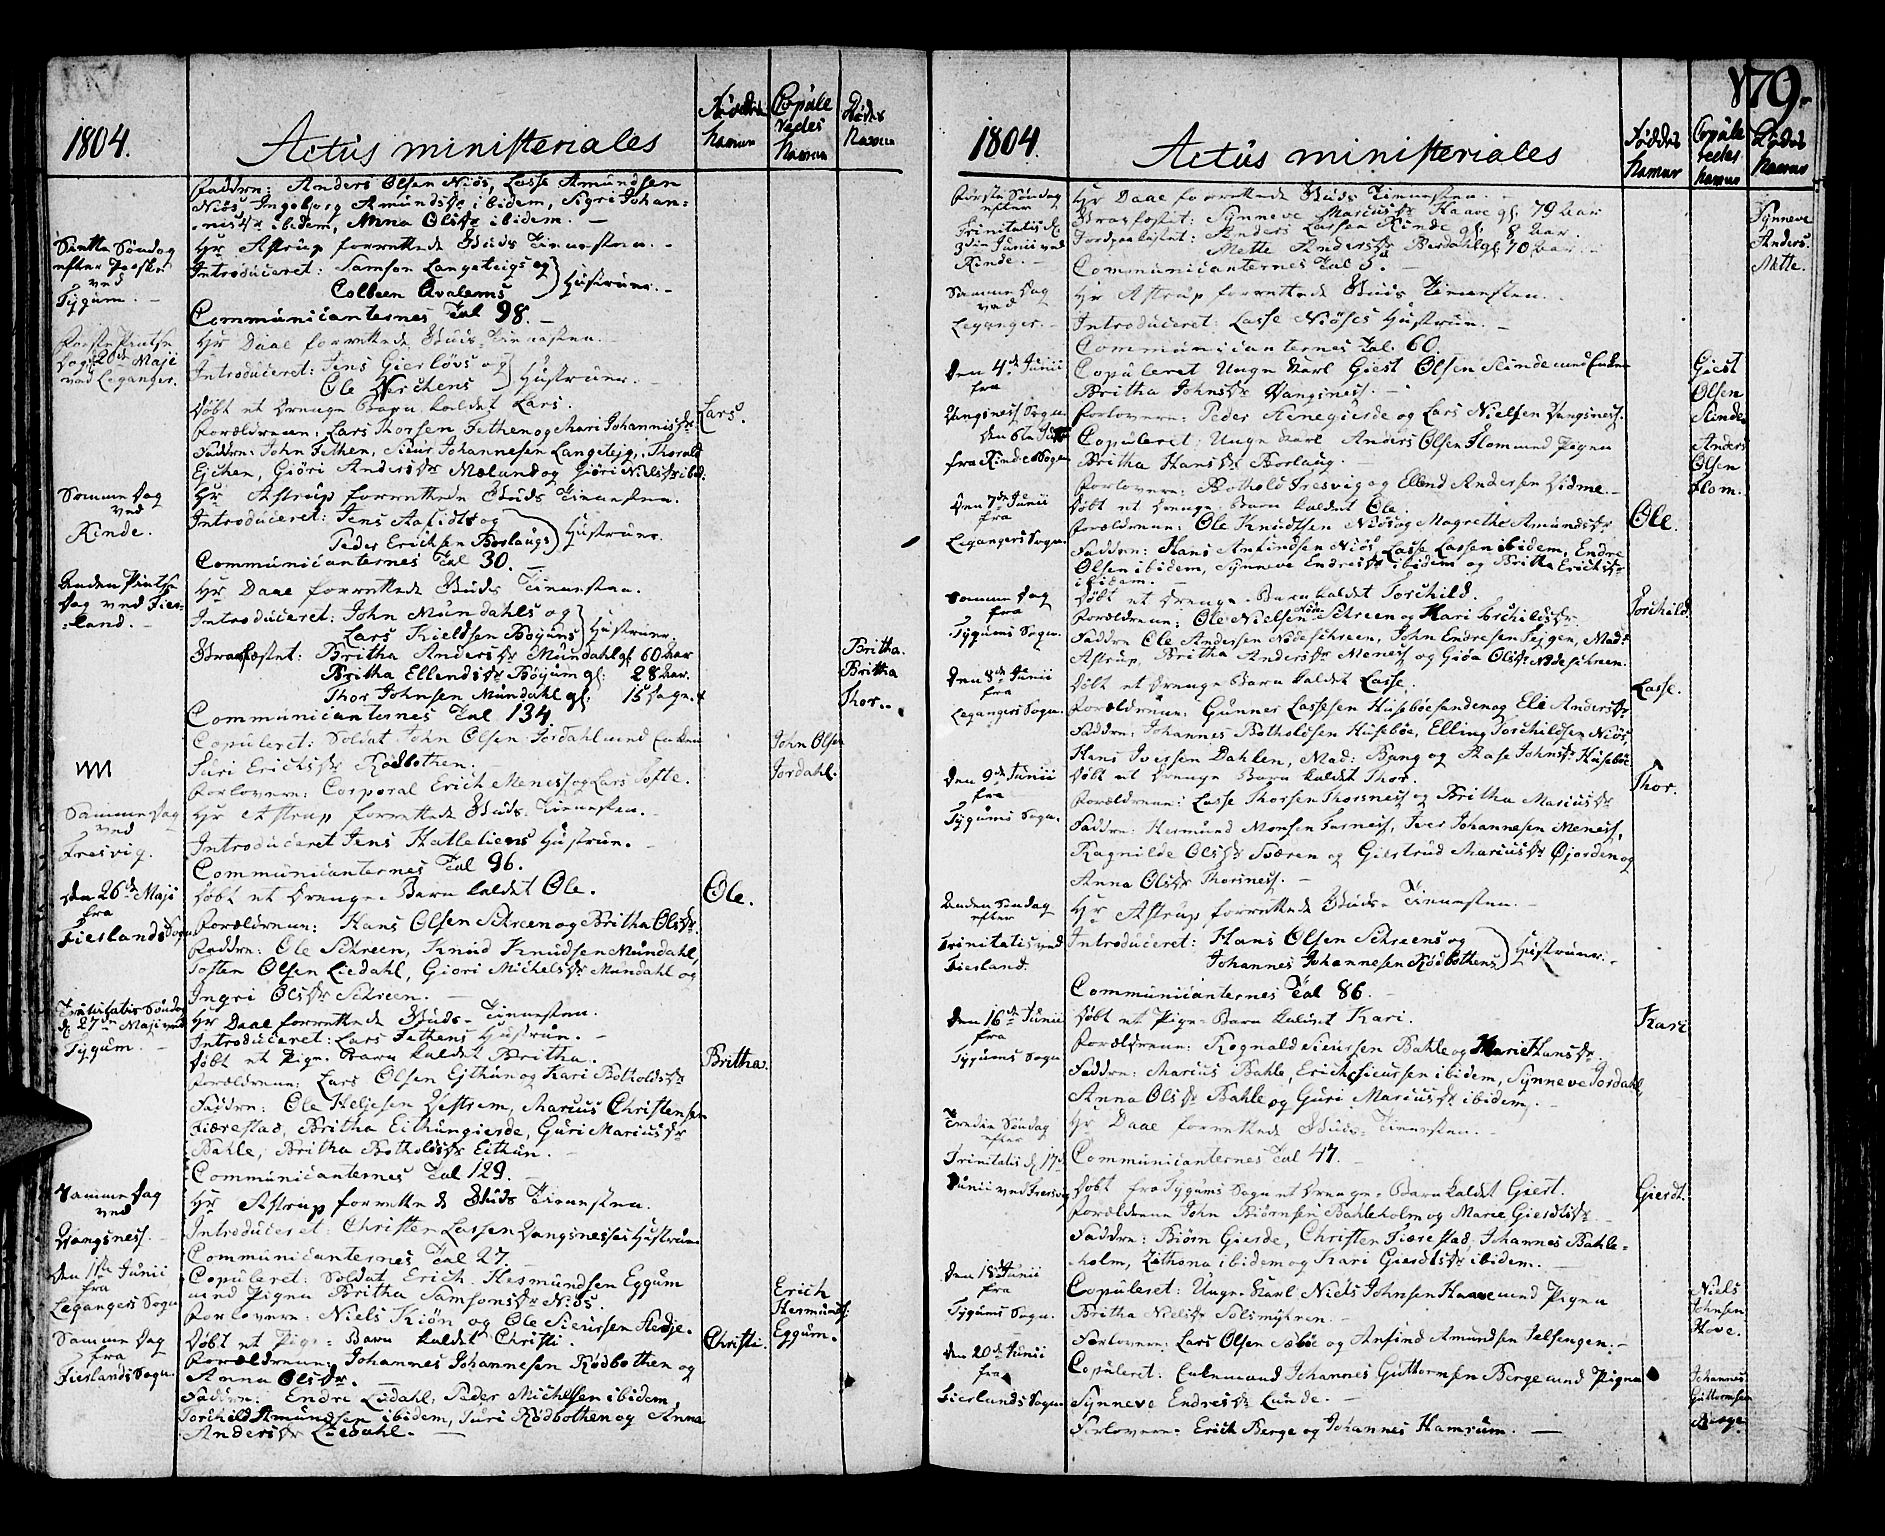 1804.
Actus ministeriales
Fødde
Copule
Døde
Navne
vedes
Navne
Navne
Faddre: Anders Olsen Niøs, Lasse Amundsen
Niøs Ingeborg Amundsdr ibidem, Sigri Johan-
nisdr ibidem, Anna Olsdr ibidem. -
Siette Søndag
efter Paaske
ved
Tygum. -
Hr Astrup forrettede Guds Tienesten. -
Introduceret: Samson Langeteigs og
Colbeen Qvalems } Hustruer. -
Communicanternes Tal 98. -
Første Pintse
Dag d 20de Maji
ved Leganger.
Hr Daae forrettede Guds-Tienesten.
Introduceret: Jens Gierløvs og
Ole Nerchens } Hustruer. -
Døbt et Drenge Barn kaldet Lars.
Lars.
Forældrene: Lars Thorsen Fethen og Mari Johannisdr
Faddre: John Fethen, Siur Johannesen Langeteig, Thorald
Ejthen, Giøri Andersdr Mæland og Giøri Nielsdr ibid.
Samme Dag
ved
Rinde.
Hr Astrup forrettede Guds Tienesten.
Introduceret: Jens Aafedts og
Peder Erichsen Borlaugs } Hustruer.
Communicanternes Tal 30. -
Anden Pintse
Dag ved Fies-
land. -
Hr Daae forrettede Guds Tienesten.
Introduceret: John Mundahls og
Lars Kieldsen Bøyums } Hustruer.
Gravfæstet: Britha Andersdr Mundahl gl 60 Aar
Britha.
Britha Ellendsdr Bøyum gl: 28 Aar.
Britha
Thor Johnsen Mundahl gl 15 Dage.
Thor..
Communicanternes Tal 134
Copuleret: Soldat John Olsen Jordahl med Enken
John Olsen
Siuri Erichsdr Rødbothen. -
Jordahl.
Forlovere: Corporal Erich Menes og Lars Tofte.
Samme Dag
ved
Fresvig.
Hr Astrup forrettede Guds-Tienesten. -
Introduceret Jens Hatleliens Hustrue. -
Communicanternes Tal 96.
Den 26de Maji
fra
Fieslands Sogn
Døbt et Drenge-Barn kaldet Ole.
Ole.
Forældrene: Hans Olsen Schreen og Britha Olsdr.
Faddre: Ole Schreen, Knud Knudsen Mundahl,
Tosten Olsen Liedahl, Giøri Michelsdr Mundahl og
Ingri Olsdr Schreen. -
Trinitatis Søndag
d 27de Maji ved
Tygum. -
Hr Daae forrettede Guds-Tienesten.
Introduceret: Lars Fethens Hustrue. -
Døbt et Pige-Barn kaldet Britha.
Britha.
Forældrene: Lars Olsen Ejthun og Kari Botholdsdr
Faddre: Ole Heljesen Vestrem, Marcus Christensen
Fiærestad, Britha Eithungierde, Guri Mariusdr
Bahle, Britha Botholdsdr Eithun. -
Communicanternes Tal 129. -
Samme Dag
ved
Vangsness. -
Hr Astrup forrettede Guds Tienesten.
Introduceret Christen Lassen Vangsnesses Hustrue
Communicanternes Tal 27. -
Den 1ste Junii
fra
Legangers Sogn
Copuleret: Soldat Erich Hermundsen Eggum
med Pigen Britha Samsonsdr Niøs.
Erich
Hermunds:
Eggum.
Forlovere: Niels Kiøn og Ole Sieursen Stedje.
Samme Dag
fra
Fieslands Sogn.
Døbt et Pige-Barn kaldet Christi.
Christi.
Forældrene: Johannes Johannesen Rødbothen og
Anna Olsdr. -
Faddre: Endre Liedahl, Peder Michelsen ibidem,
Torchild Amundsen ibidem, Siuri Rødbothen og Anna
Andersdr Liedahl. -
179.
1804.
Actus ministeriales
Fødde
Navne
Copule
vedes
Navne
Dødes
Navne
Første Søndag
efter
Trinitatis d
3die Junii ved
Rinde. -
Hr Daae forrettede Guds Tienesten. -
Gravfæstet: Synneve Mariusdr Haave gl. 79 Aar
Synneve
Jordpaakastet: Anders Lassen Rinde gl. 8 Aar.
Anders.
Mette Andersdr Berdahl gl 70 Aar
Mette.
Communicanternes Tal 5. -
Samme Dag
ved
Leganger. -
Hr Astrup forrettede Guds Tienesten. -
Introduceret: Lasse Niøses Hustrue. -
Communicanternes Tal. 60.
Den 4de Junii
fra
Vangsness Sogn
Copuleret Unge Karl Giest Olsen Slinde med Enken
Britha Johnsdr Vangsness. -
Giest
Olsen
Slinde
Forlovere: Peder Stenegierde og Lars Nielsen Vangsness.
Den 6te Junii
fra Rinde Sogn
Copuleret: Unge Karl Anders Olsen Flom med Pigen
Britha Hansdr Borlaug.
Anders
Olsen
Flom.
Forlovere: Bothold Fresvig og Ellend Andersen Vidme. -
Den 7de Junii
fra
Legangers Sogn.
Døbt et Drenge-Barn kaldet Ole.
Ole.
Forældrene: Ole Knudtsen Niøs og Magrethe Amundsdr
Faddre: Hans Amundsen Niøs, Lasse Lassen ibidem, Endre
Olsen ibidem, Synneve Endresdr ibidem og Britha Erichsdr
ibidem. -
Samme Dag
fra
Tygums Sogn.
Døbt et Drenge-Barn kaldet Torchild.
Torchild.
Forældrene: Ole Nielsen Nøde Schreen og Kari Torchildsdr.
Faddre Ole Andersen Nødeschreen, John Endresen Fejgen, Mad:
Astrup, Britha Andersdr Meness og Gida Olsdr Nødeschreen.
Den 8de Junii
fra
Legangers Sogn.
Døbt et Drenge Barn kaldet Lasse.
Lasse.
Forældrene: Gunner Lassesen Husebøesanden og Eli Andersdr
Faddre: Johannes Botholdsen Husebøe, Elling Torchildsen Niøs,
Hans Iversen Dahlen, Mad: Bang og Aase Johnsdr Husebøe
Den 9de Junii
fra
Tygums Sogn.
Døbt et Drenge Barn kaldet Thor.
Thor.
Forældrene: Lasse Thorsen Thorsness og Britha Mariusdr
Faddre: Hermund Monsen Furness, Iver Johannesen Meness,
Ragnilde Olsdr Sværen og Giertrud Mariusdr Øjorden og
Anna Olsdr Thorsness. -
Anden Søndag
efter
Trinitatis ved
Fiesland.
Hr Astrup forrettede Guds-Tienesten. -
Introduceret: Hans Olsen Schreens og
Johannes Johannesen Rødbothens } Hustruer. -
Communicanternes Tal 86. -
Den 16de Junii
fra
Tygums Sogn
Døbt et Pige-Barn kaldet Kari.
Kari
Forældrene: Rognald Sieursen Bahle og Marie Hansdr.
Faddre: Marcus Bahle, Erich Sieursen ibidem, Synneve Jordahl,
Anna Olsdr Bahle og Guri Mariusdr ibidem. -
Tredie Søndag
efter
Trinitatis d 17de
Junii ved Fresvig
Hr Daae forrettede Guds-Tienesten. -
Communicanternes Tal 47. -
Døbt fra Tygums Sogn et Drenge-Barn kaldet Giert.
Gierdt.
Forældrene John Biørnsen Bahleholm og Marie Gierdtsdr.
Faddre: Biørn Gierde, Christen Fiærestad, Johannes Bahle-
holm, Lithona ibidem og Kari Gierdtsdr ibidem. -
Den 18de Junii
fra
Tygums Sogn.
Copuleret: Unge-Karl Niels Johnsen Haave med Pigen
Britha Nielsdr Solsmyren. -
Niels
Johnsen
Hove.
Forlovere: Lars Olsen Sæbøe og Anfind Amundsen Felsengen. -
Den 20de Junii
fra
Fierlands Sogn
Copuleret: Enkemand Johannes Guttormsen Berge med Pigen
Synneve Endresdr Lunde. -
Johannes
Guttormsen
Berge.
Forlovere. Erich Berge og Johannes Hamrum. -